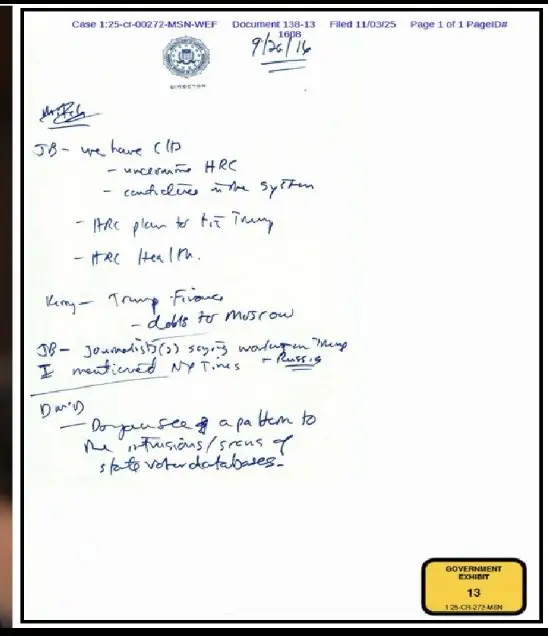 Case 1:25-cr-00272-MSN-WEF Document 138-13 Filed 11/03/25 Page 1 of 1 PageID#
1608
9/26/16
DIRECTOR
JB - we have CIA
- undermine HRC
- confidence in the system
- HRC plan to tie Trump
- HRC Health.
Kerry - Trump Finance
- debts to Moscow
JB - Journalist(s) saying working on Trump
+ Russia
I mentioned NY Times
DavD
- Do you see a pattern to
the intrusions/scans of
state voter databases.
GOVERNMENT
EXHIBIT
13
1:25-CR-272-MSN